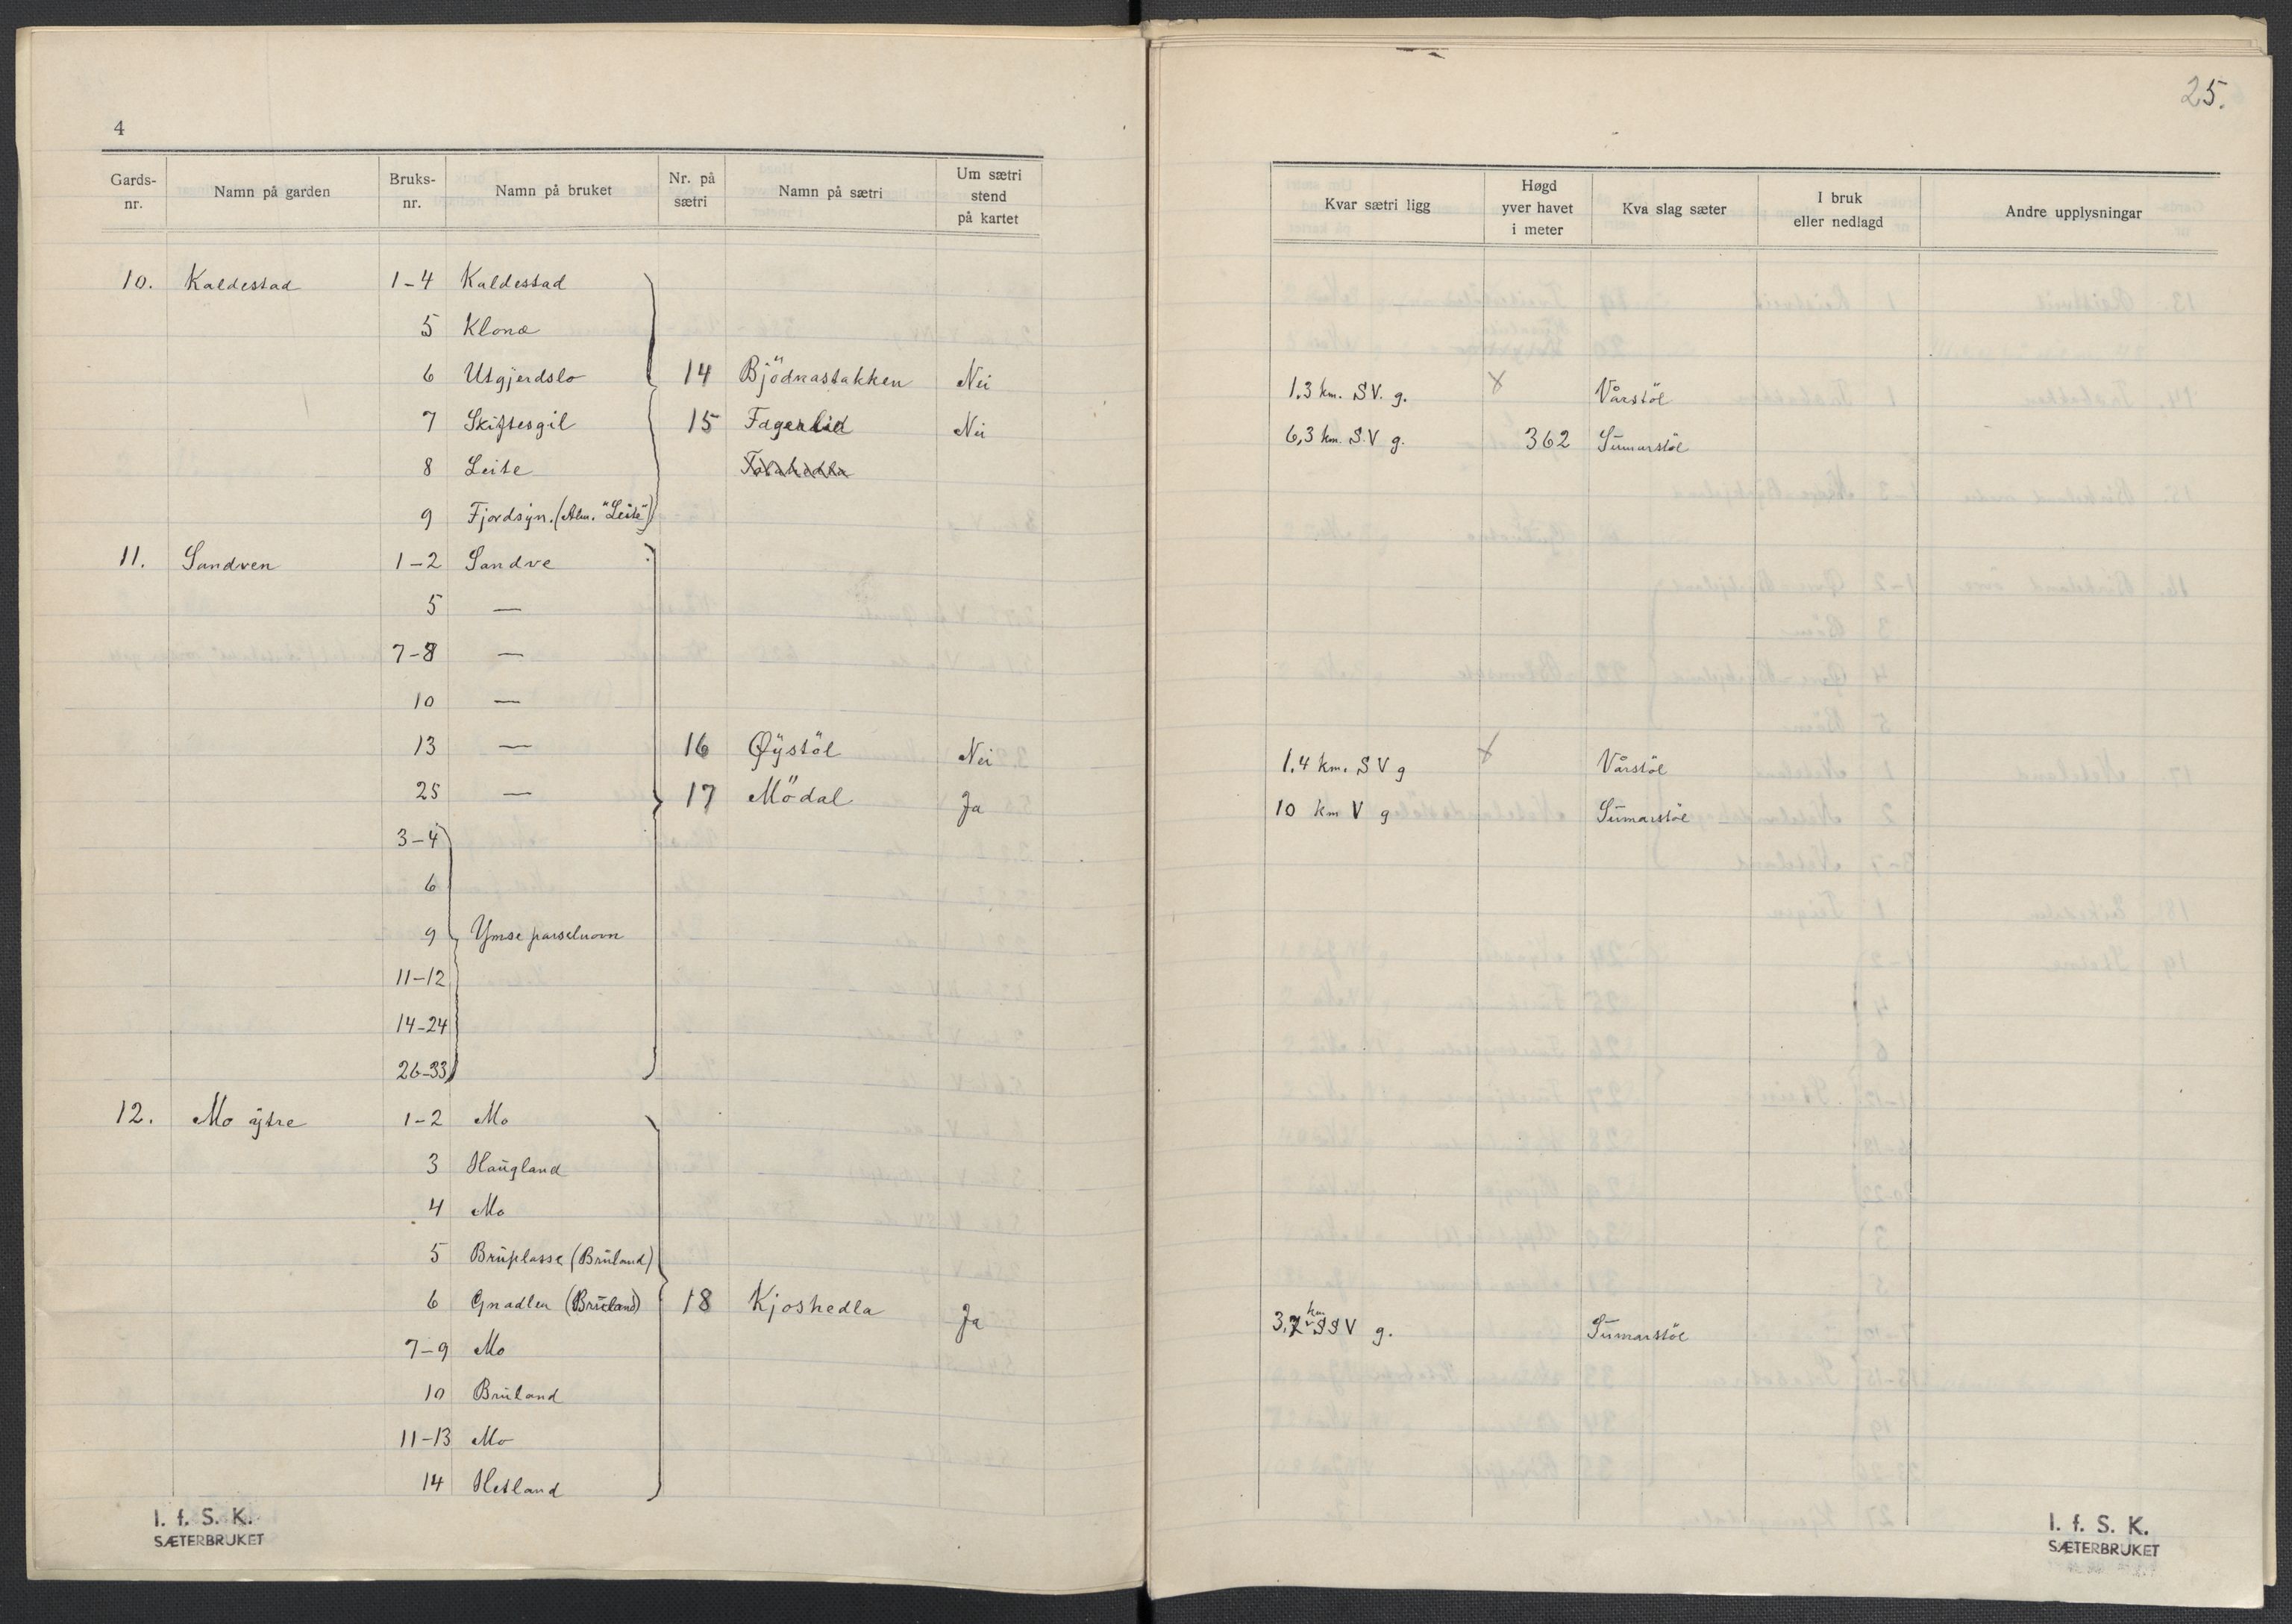 4
Gards-nr. Namn på garden Bruks-nr. Namn på bruket Nr. på sætri Namn på sætri Um sætri stend på kartet
10. Kaldestad 1-4 Kaldestad
5 Klona
6 Utgjerdslo 14 Bjödnastakken Nei
7 Skiftesgil 15 Fagerlid Nei
8 Leite
9 Fjordsyn. (Alm. "Leite")
11. Sandven 1-2 Sandve
5 —
7-8 —
10 —
13 — 16 Øystöl Nei
25 — 17 Mödal Ja
3-4
6
9 Ymse parselnovn
11-12
14-24
26-33
12. Mo ytre 1-2 Mo
3 Haugland
4 Mo
5 Bruplasse (Bruland)
6 Gnadlen (Bruland) 18 Kjoshedla Ja
7-9 Mo
10 Bruland
11-13 Mo
14 Hetland
I. f. S. K.
SÆTERBRUKET
25.
Kvar sætri ligg Høgd yver havet i meter Kva slag sæter I bruk eller nedlagd Andre upplysningar
1.3 km. SV. g. x Vårstöl
6,3 km. S.V g. 362 Sumarstöl
1.4 km. SV g x Vårstöl
10 km V g Sumarstöl
3,7 km SSV g. Sumarstöl
I. f. S. K.
SÆTERBRUKET